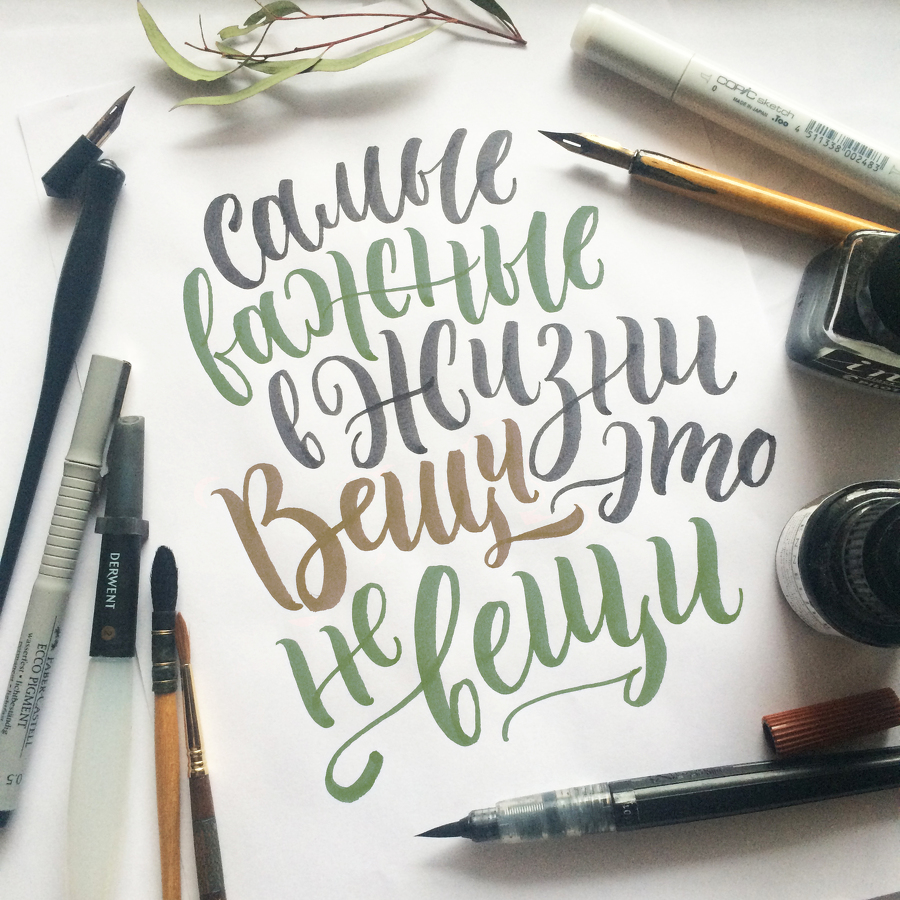 самые
важные
в Жизни
Вещи это
не вещи
COPIC sketch
0
MADE IN JAPAN .Too
4 511338 002483
DERWENT
2
FABER-CASTELL
ECCO PIGMENT
0.5